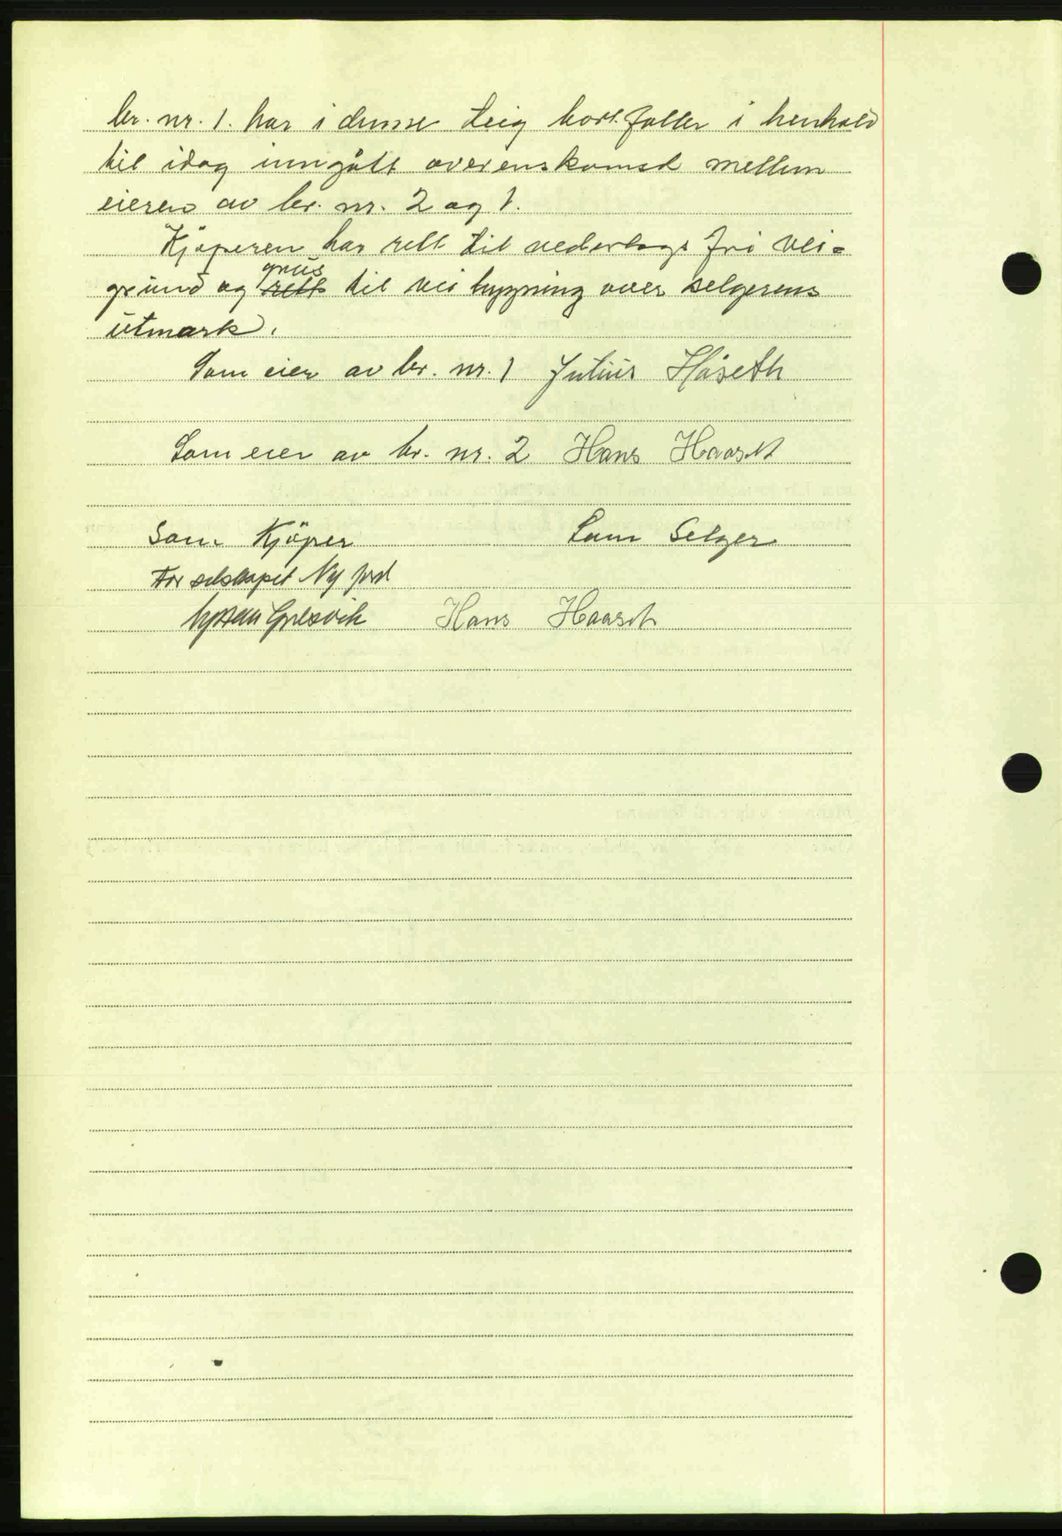 br. nr. 1. har i denne teig bortfaller i henhold
til idag inngått overenskomst mellem
eieren av br. nr. 2 og 1.
Kjøperen har rett til vederlags fri vei-
grus
grund og rett til vei bygning over selgerens
utmark.
Som eier av br. nr. 1 Julius Håseth
Som eier av br. nr. 2 Hans Haaseth
Som Kjöper Som Selger
For selskapet Ny jord
Hans Haaseth